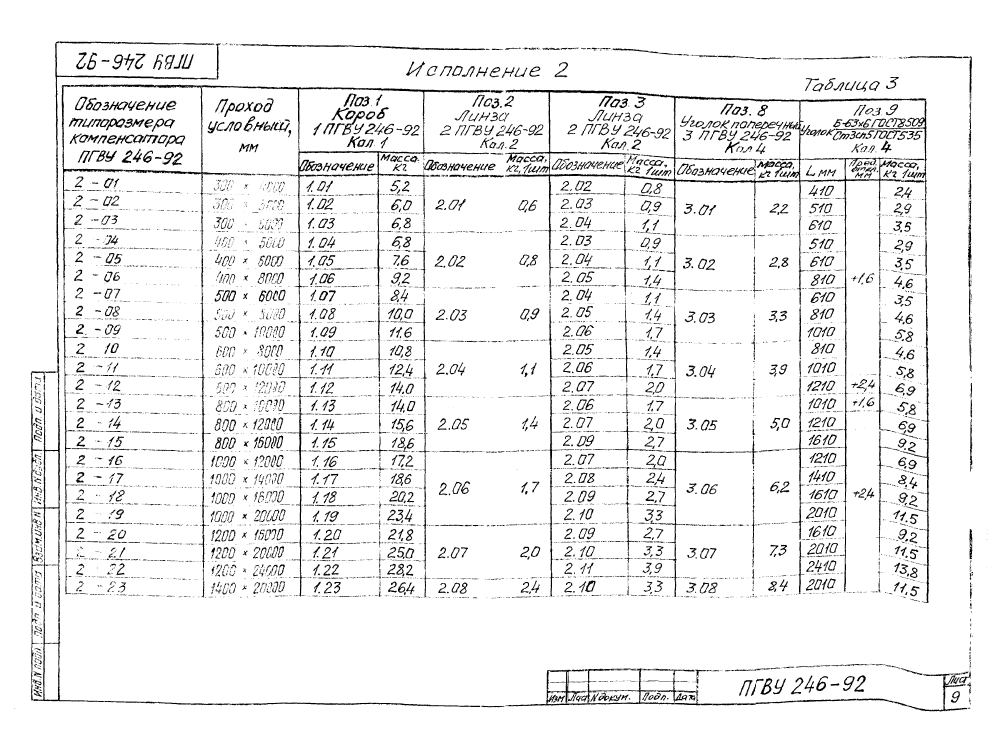 ПГВУ 246-92
Исполнение 2
Таблица 3
Обозначение типоразмера компенсатора ПГВУ 246-92 | Проход условный, мм | Поз. 1 Короб 1 ПГВУ 246-92 Кол. 1 | Поз. 2 Линза 2 ПГВУ 246-92 Кол. 2 | Поз. 3 Линза 2 ПГВУ 246-92 Кол. 2 | Поз. 8 Уголок поперечный 3 ПГВУ 246-92 Кол 4 | Поз 9 Уголок Б-63х6 ГОСТ8509 Ст3сп5 ГОСТ535 Кол. 4
Обозначение | Масса кг | Обозначение | Масса, кг, 1шт | Обозначение | Масса, кг 1шт | Обозначение | Масса, кг 1шт | L мм | Пред. откл. мм | Масса, кг 1шт
2-01 | 1.01 | 5,2 | 2.02 | 0,8 | 410 | 2,4
2-02 | 1.02 | 6,0 | 2.01 | 0,6 | 2.03 | 0,9 | 3.01 | 2,2 | 510 | 2,9
2-03 | 300 × 6000 | 1.03 | 6,8 | 2.04 | 1,1 | 610 | 3,5
2-04 | 400 × 5000 | 1.04 | 6,8 | 2.03 | 0,9 | 510 | 2,9
2-05 | 400 × 6000 | 1.05 | 7,6 | 2.02 | 0,8 | 2.04 | 1,1 | 3.02 | 2,8 | 610 | 3,5
2-06 | 400 × 8000 | 1.06 | 9,2 | 2.05 | 1,4 | 810 | +1,6 | 4,6
2-07 | 500 × 6000 | 1.07 | 8,4 | 2.04 | 1,1 | 610 | 3,5
2-08 | 500 × 8000 | 1.08 | 10,0 | 2.03 | 0,9 | 2.05 | 1,4 | 3.03 | 3,3 | 810 | 4,6
2-09 | 500 × 10000 | 1.09 | 11,6 | 2.06 | 1,7 | 1010 | 5,8
2 10 | 600 × 8000 | 1.10 | 10,8 | 2.05 | 1,4 | 810 | 4,6
2-11 | 600 × 10000 | 1.11 | 12,4 | 2.04 | 1,1 | 2.06 | 1,7 | 3.04 | 3,9 | 1010 | 5,8
2-12 | 600 × 12000 | 1.12 | 14,0 | 2.07 | 2,0 | 1210 | +2,4 | 6,9
2-13 | 800 × 10000 | 1.13 | 14,0 | 2.06 | 1,7 | 1010 | +1,6 | 5,8
2-14 | 800 × 12000 | 1.14 | 15,6 | 2.05 | 1,4 | 2.07 | 2,0 | 3.05 | 5,0 | 1210 | 6,9
2-15 | 800 × 16000 | 1.15 | 18,6 | 2.09 | 2,7 | 1610 | 9,2
2-16 | 1000 × 12000 | 1.16 | 17,2 | 2.07 | 2,0 | 1210 | 6,9
2-17 | 1000 × 14000 | 1.17 | 18,6 | 2.06 | 1,7 | 2.08 | 2,4 | 3.06 | 6,2 | 1410 | 8,4
2-18 | 1000 × 16000 | 1.18 | 20,2 | 2.09 | 2,7 | 1610 | +2,4 | 9,2
2-19 | 1000 × 20000 | 1.19 | 23,4 | 2.10 | 3,3 | 2010 | 11,5
2-20 | 1200 × 16000 | 1.20 | 21,8 | 2.09 | 2,7 | 1610 | 9,2
2-21 | 1200 × 20000 | 1.21 | 25,0 | 2.07 | 2,0 | 2.10 | 3,3 | 3.07 | 7,3 | 2010 | 11,5
2-22 | 1200 × 24000 | 1.22 | 28,2 | 2.11 | 3,9 | 2410 | 13,8
2-23 | 1400 × 20000 | 1.23 | 26,4 | 2.08 | 2,4 | 2.10 | 3,3 | 3.08 | 8,4 | 2010 | 11,5
Инв.N подл. | Подп. и дата | Взам.инв N | Инв.N дубл. | Подп. и дата
Изм | Лист | N докум. | Подп. | Дата
ПГВУ 246-92
Лист
9